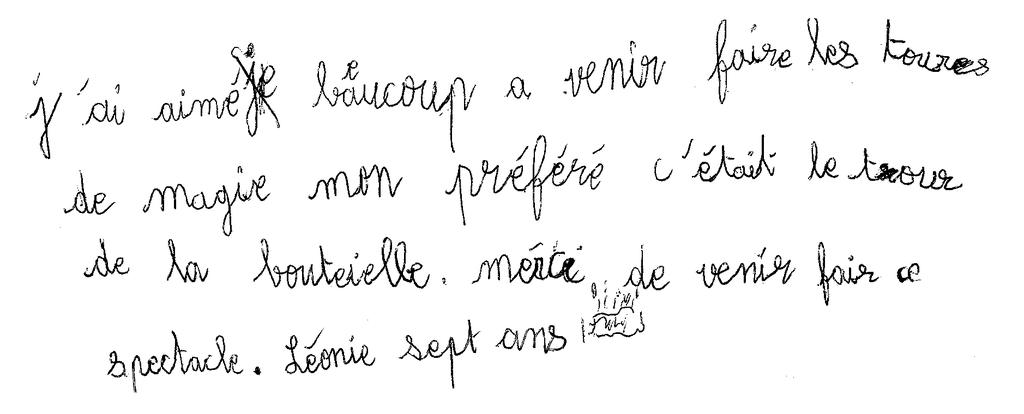 j'ai aimé beaucoup a venir faire les toures
de magie mon préféré c'était le trour
de la bouteielle. merci de venir fair ce
spectacle. Léonie sept ans